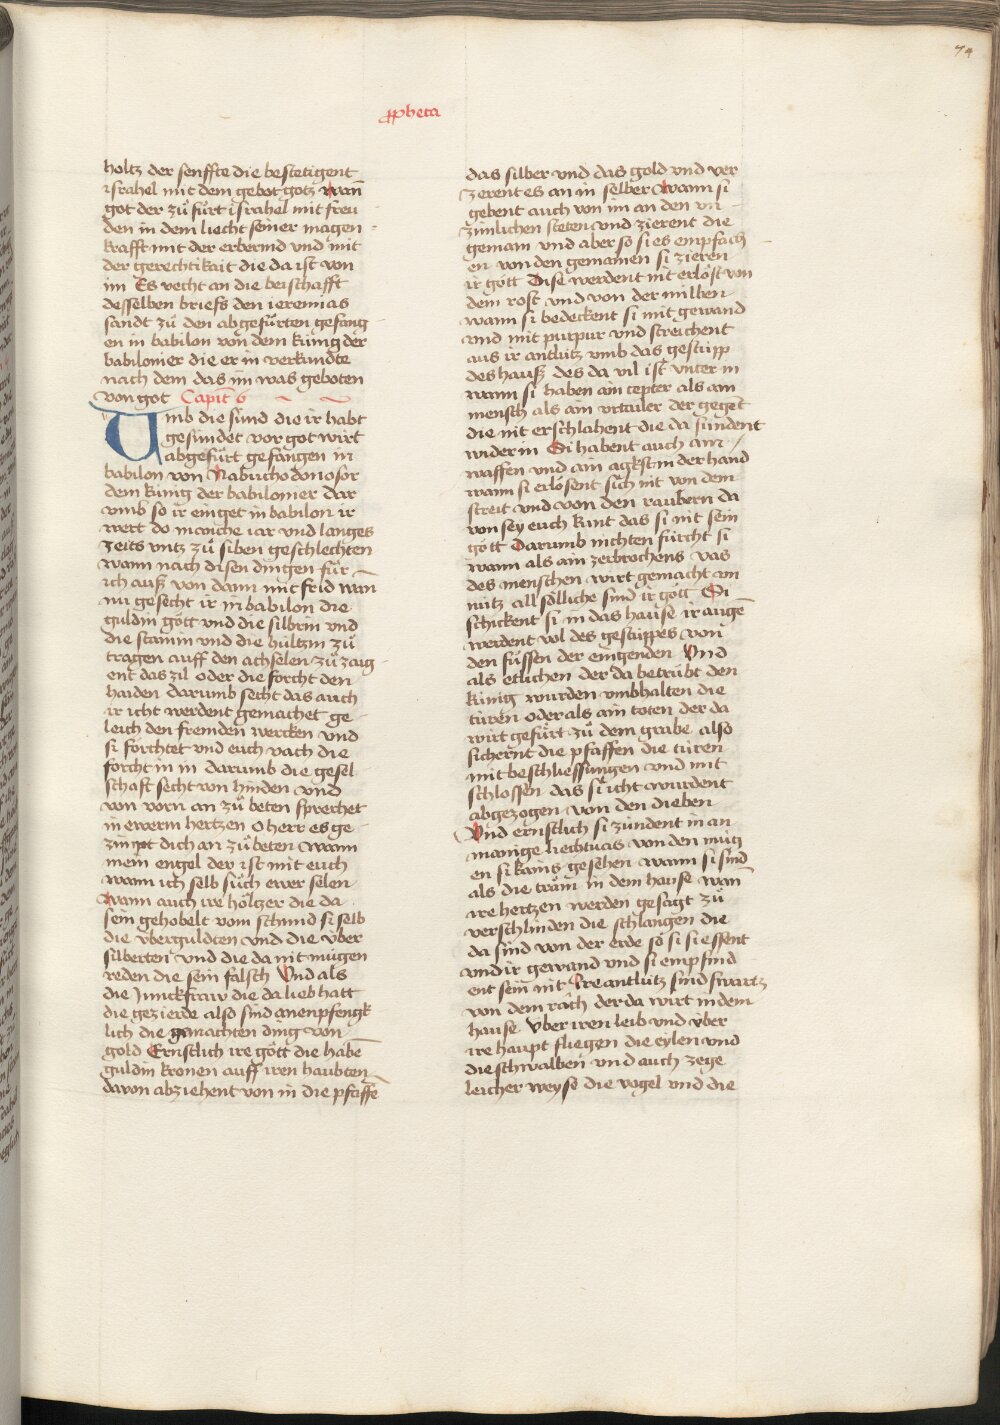 74
ꝓpheta
holtz der senffte die bestetigent
israhel mit dem gebot gotz wan̄
got der zů fůrt israhel mit freu
den in dem liecht seiner magen-
krafft mit der erbermd vnd mit
der gerechtikait die da ist von
im Es vecht an die beischafft
desselben briefs den ieremias
sandt zů den abgefůrten gefang
en in babilon von dem kúnig der
babilonier die er in verkundte
nach dem das im was geboten
von got Capit̄ 6
Umb die súnd die ir habt
gesúndet vor got wirt
abgefúrt gefangen in
babilon von Nabuchodonosor
dem kúnig der babilonier dar
vmb so ir einget in babilon ir
wert do maniche iar vnd langes
zeits vntz zů siben geschlechten
wann nach disen dingen für
ich auß von dann mit frid wan̄
nu gesecht ir in babilon die
guldin gött vnd die silbrin vnd
die stainin vnd die hültzin zů
tragen auff den achselen zů zaig
ent das zil oder die forcht den
haiden darumb secht das auch
ir icht werdent gemachet ge-
leich den fremden wercken vnd
si förchtet vnd euch vach die
forcht in in darumb die gesel
schaft secht von hinden vnd
von vorn an zů beten sprechet
in ewerm hertzen O herr es ge-
zimpt dich an zů beten wann
mein engel der ist mit euch
wann ich selb sůch ewer selen
wann auch ire höltzer die da
sein gehobelt vom schmid si selb
die vberguldten vnd die vber
silberten vnd die da nit mügen
reden die sein falsch Vnd als
die Junckfraw die da lieb hatt
die gezierde also sind anenpfengk
lich die gemachten ding von
gold Ernstlich ire gött die habē
guldin kronen auff iren haubten
davon abziehent von in die pfaffē
das silber vnd das gold vnd ver
zerent es an in selber wann si
gebent auch von im an den vn-
zimlichen steten vnd zierent die
gemain vnd aber so si es empfach-
en von den gemainen si zieren
ir gött Dise werdent nit erlöst von
dem rost vnd von der milben
wann si bedeckent si mit gewand
vnd mit purpur vnd streichent
aus ir antlütz vmb das gestüpp
des hauß des da vil ist vnter in
wann si haben ain cepter als ain
mensch als ain vrtailer der gegēt
die nit erschlahent die da sündent
wider in Si habent auch ain
waffen vnd ain agkst in der hand
wann si erlösent sich nit von dem
streit vnd von den raubern da
von sey euch kunt das si nit sein
gött Darumb nichten fürcht si
wann als ain zerbrochens vas
des menschen wirt gemacht vn
nütz all sölliche sind ir gött Si
schickent si in das hause ir augē
werdent vol des gestüppes von
den füssen der eingenden Vnd
als etlichen der da betrübt den
künig wurden vmbhalten die
türen oder als ain toten der da
wirt gefürt zů dem grabe also
sichernt die pfaffen die türen
mit beschliessungen vnd mit
schlossen das si icht wurdent
abgezogen von den dieben
Vnd ernstlich si zündent in an
manige liechtuas von den müg
en si kains gesehen wann si sind
als die träm in dem hause wan̄
ire hertzen werden gesagt zů
verschlinden die schlangen die
da sind von der erde so si si essent
vnd ir gewand vnd si empfind
ent sein nit Ire antlütz sind swartz
von dem rach der da wirt in dem
hause Vber iren leib vnd vber
ire haupt fliegen die eylen vnd
die schwalben vnd auch zege
leicher weyse die vogel vnd die